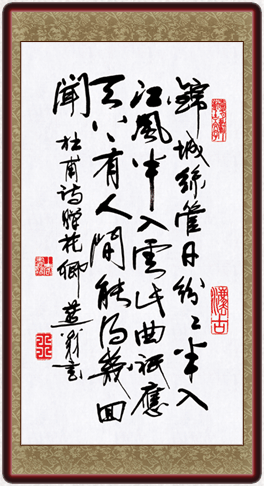 錦城絲管日紛々半入
江風半入雲此曲祗應
天上有人間能得幾回
聞 杜甫詩贈花卿 書